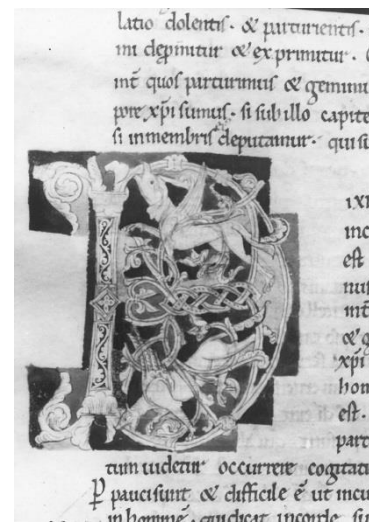 latio dolentis. & parturientis.
ini depinitur & exprimitur.
int quos parturimus & gemimus
pore xpi sumus. si sub illo capite
si in membris deputamur. qui su
inc
est
nus
int
& q
xpi
hom
est.
part
tum uidetur occurrere cogitati
P paucisunt & difficile e ut incur
in homine. qui dicat in corde su